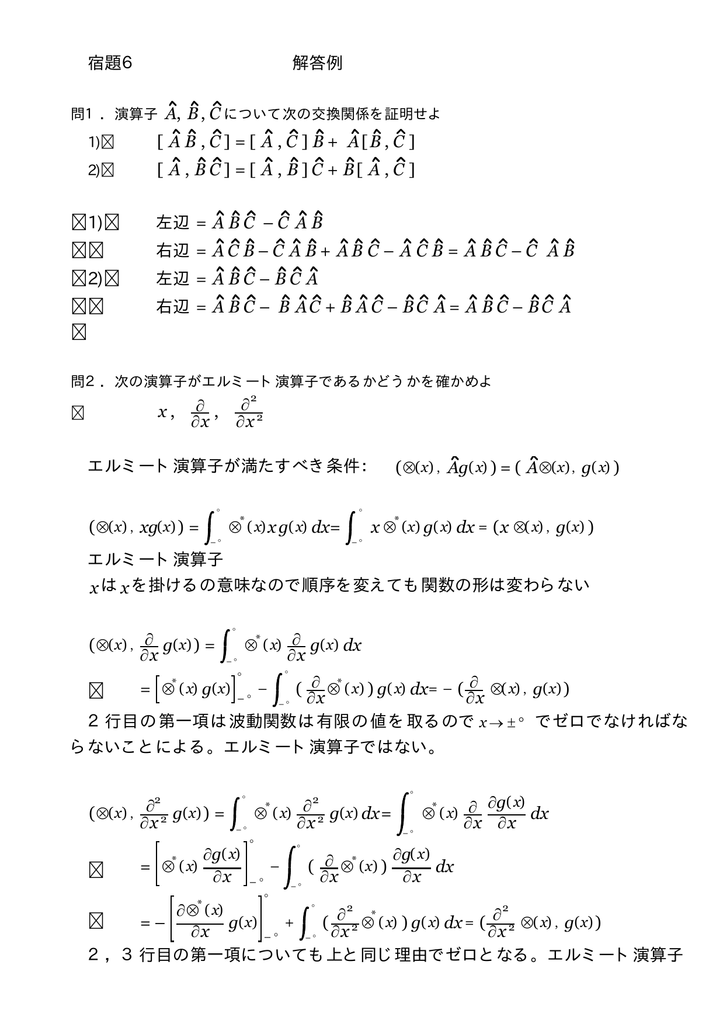 宿題6 解答例
問1．演算子 Â, B̂, Ĉについて次の交換関係を証明せよ
1)☒ [ÂB̂, Ĉ] = [Â, Ĉ]B̂ + Â[B̂, Ĉ]
2)☒ [Â, B̂Ĉ] = [Â, B̂]Ĉ + B̂[Â, Ĉ]
☒1)☒ 左辺 = ÂB̂Ĉ − ĈÂB̂
☒☒ 右辺 = ÂĈB̂ − ĈÂB̂ + ÂB̂Ĉ − ÂĈB̂ = ÂB̂Ĉ − Ĉ ÂB̂
☒2)☒ 左辺 = ÂB̂Ĉ − B̂ĈÂ
☒☒ 右辺 = ÂB̂Ĉ − B̂ÂĈ + B̂ÂĈ − B̂ĈÂ = ÂB̂Ĉ − B̂ĈÂ
☒
問2．次の演算子がエルミート演算子であるかどうかを確かめよ
☒ x, ∂/∂x, ∂²/∂x²
エルミート演算子が満たすべき条件： (⊗(x), Âg(x)) = (Â⊗(x), g(x))
(⊗(x), xg(x)) = ∫_{−°}^{°} ⊗*(x)xg(x) dx = ∫_{−°}^{°} x⊗*(x)g(x) dx = (x⊗(x), g(x))
エルミート演算子
xはxを掛けるの意味なので順序を変えても関数の形は変わらない
(⊗(x), ∂/∂x g(x)) = ∫_{−°}^{°} ⊗*(x) ∂/∂x g(x) dx
☒ = [⊗*(x)g(x)]_{−°}^{°} − ∫_{−°}^{°} (∂/∂x ⊗*(x))g(x) dx = −(∂/∂x ⊗(x), g(x))
2行目の第一項は波動関数は有限の値を取るので x→±° でゼロでなければな
らないことによる。エルミート演算子ではない。
(⊗(x), ∂²/∂x² g(x)) = ∫_{−°}^{°} ⊗*(x) ∂²/∂x² g(x) dx = ∫_{−°}^{°} ⊗*(x) ∂/∂x ∂g(x)/∂x dx
☒ = [⊗*(x) ∂g(x)/∂x]_{−°}^{°} − ∫_{−°}^{°} (∂/∂x ⊗*(x)) ∂g(x)/∂x dx
☒ = −[∂⊗*(x)/∂x g(x)]_{−°}^{°} + ∫_{−°}^{°} (∂²/∂x² ⊗*(x))g(x) dx = (∂²/∂x² ⊗(x), g(x))
2，3行目の第一項についても上と同じ理由でゼロとなる。エルミート演算子